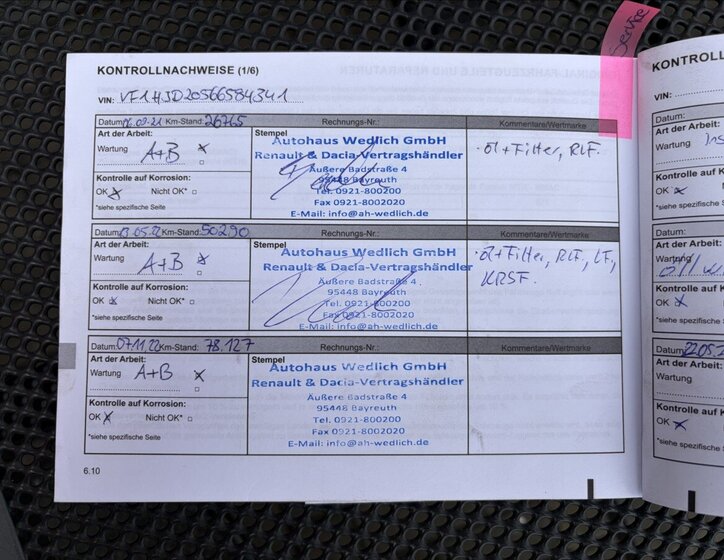 Service
KONTROLLNACHWEISE (1/6)
VIN: VF1HJD20566584341
Datum: 06.09.21 Km-Stand: 26765 Rechnungs-Nr.: Kommentare/Wertmarke
Art der Arbeit: Stempel
Wartung A+B x
Autohaus Wedlich GmbH
Renault & Dacia-Vertragshändler
Äußere Badstraße 4
95448 Bayreuth
Tel. 0921-800200
Fax 0921-8002020
E-Mail: info@ah-wedlich.de
Öl+Filter, RLF.
Kontrolle auf Korrosion:
OK x Nicht OK*
*siehe spezifische Seite
Datum: 13.05.22 Km-Stand: 50290 Rechnungs-Nr.: Kommentare/Wertmarke
Art der Arbeit: Stempel
Wartung A+B x
Autohaus Wedlich GmbH
Renault & Dacia-Vertragshändler
Äußere Badstraße 4
95448 Bayreuth
Tel. 0921-800200
Fax 0921-8002020
E-Mail: info@ah-wedlich.de
Öl+Filter, RLF, LF,
KRSF.
Kontrolle auf Korrosion:
OK x Nicht OK*
*siehe spezifische Seite
Datum: 07.11.22 Km-Stand: 78.127 Rechnungs-Nr.: Kommentare/Wertmarke
Art der Arbeit: Stempel
Wartung A+B x
Autohaus Wedlich GmbH
Renault & Dacia-Vertragshändler
Äußere Badstraße 4
95448 Bayreuth
Tel. 0921-800200
Fax 0921-8002020
E-Mail: info@ah-wedlich.de
Kontrolle auf Korrosion:
OK x Nicht OK*
*siehe spezifische Seite
6.10
KONTROLL
VIN:
Datum:
Art der Arbeit:
Wartung
Kontrolle auf K
OK x
*siehe spezifische
Datum:
Art der Arbeit:
Wartung
Kontrolle auf K
OK x
*siehe spezifische
Datum: 22.05.
Art der Arbeit:
Wartung
Kontrolle auf K
OK x
*siehe spezifische